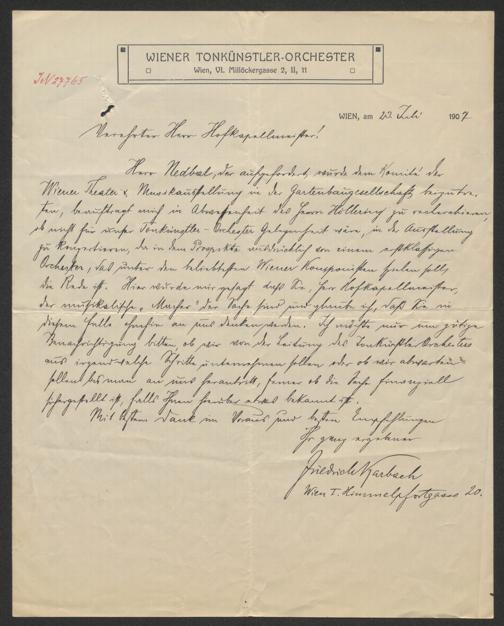 WIENER TONKÜNSTLER-ORCHESTER
Wien, VI. Millöckergasse 2, II, 11
WIEN, am 23. Juli 1907
Verehrter Herr Hofkapellmeister!
Herr Nedbal, der aufgefordert wurde dem Komité der
Wiener Theater & Musikausstellung in der Gartenbaugesellschaft beizutre-
ten, beauftragt mich in Abwesenheit des Herrn Höllering zu recherchieren,
ob nicht für unser Tonkünstler-Orchester Gelegenheit wäre, in der Ausstellung
zu konzertieren, da in dem Prospekte ausdrücklich von einem erstklassigen
Orchester, das unter den beliebtesten Wiener Komponisten spielen soll,
die Rede ist. Hier wurde mir gesagt daß Sie, Herr Hofkapellmeister,
der musikalische „Macher“ der Sache sind und glaube ich, daß Sie in
diesem Falle ohnehin an uns denken werden. Ich möchte nur um gütige
Benachrichtigung bitten, ob wir von der Leitung des Tonkünstler Orchesters
aus irgendwelche Schritte unternehmen sollen oder ob wir abwarten
sollen bis man an uns herantritt, ferner ob die Sache finanziell
sichergestellt ist, falls Ihnen hierüber etwas bekannt ist.
Mit bestem Dank im Voraus und besten Empfehlungen
Ihr ganz ergebener
Friedrich Karbach
Wien I. Himmelpfortgasse 20.